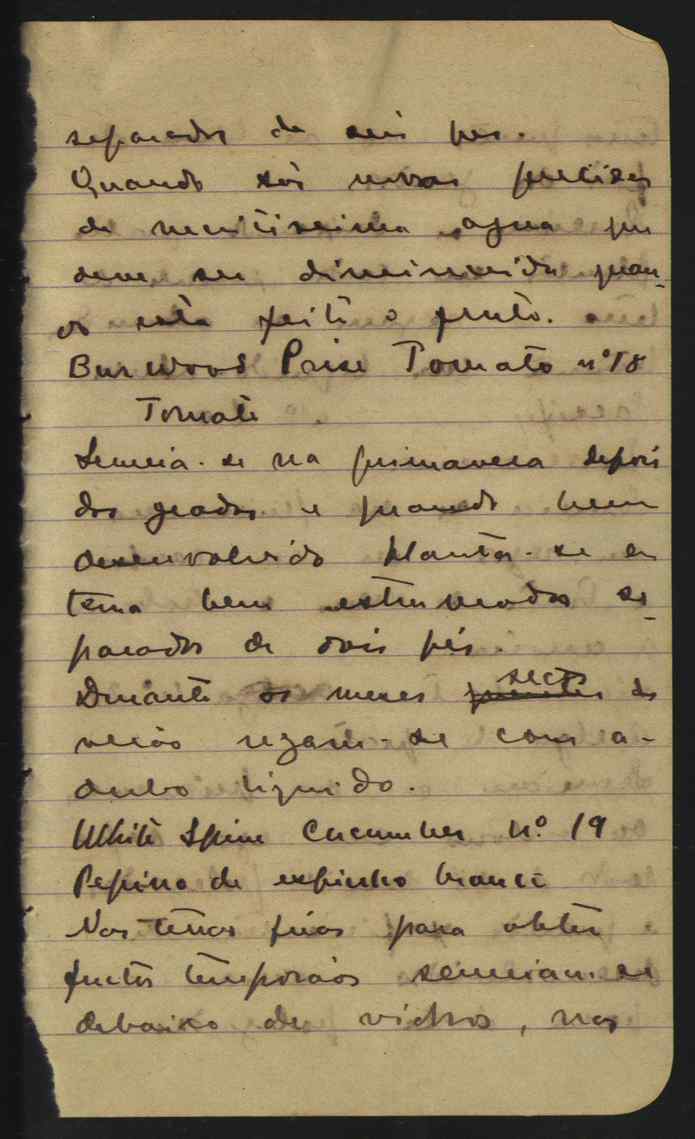 separados de seis pes.
Quando são novas precisas
de muitissima agua que
deve ser diminuida quan-
do está feito o fruto.
Burwood Prise Tomato nº 18
Tomate
Semeia-se na primavera depois
das geadas e quando bem
desenvolvido planta-se em
terra bem estrumadas se-
parados de dois pés.
Durante os meses sectos do
verão regam-se com a-
dubo liquido.
White Spine Cucumber Nº 19
Pepino de espinho branco
Nas terras frias para obter
fructos temporãos semeiam-se
debaixo de vidros, nas